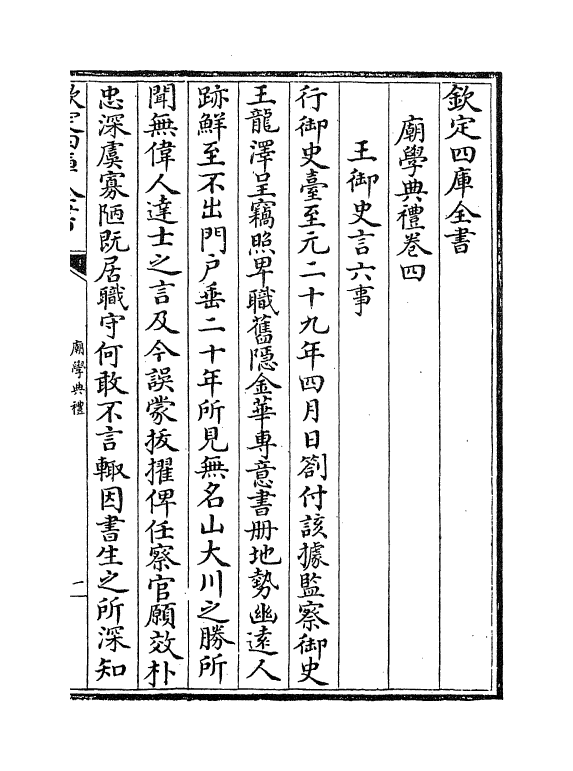 欽定四庫全書
廟學典禮卷四
王御史言六事
行御史臺至元二十九年四月日劄付該據監察御史
王龍澤呈竊照卑職舊隱金華專意書册地勢幽遠人
跡鮮至不出門戶垂二十年所見無名山大川之勝所
聞無偉人達士之言及今誤蒙拔擢俾任察官願效朴
忠深虞寡陋既居職守何敢不言輙因書生之所深知
欽定四庫全書
廟學典禮
一